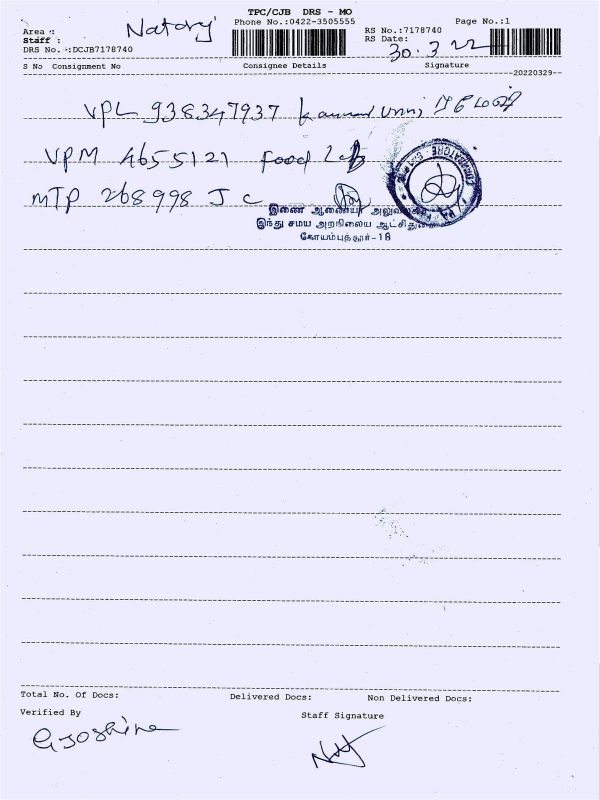 TPC/CJB DRS - MO
Phone No.:0422-3505555
Page No.:1
Area :
Staff :
DRS No. :DCJB7178740
RS No.:7178740
RS Date:
30.3.22
S No Consignment No Consignee Details Signature
--20220329--
VPL 938347937
VPM 4655121 Food Lab
MTP 268998 J C
இணை ஆணையர்
இந்து சமய அறநிலைய ஆட்சிதுறை
கோயம்புத்தூர்-18
Total No. Of Docs: Delivered Docs: Non Delivered Docs:
Verified By
Staff Signature